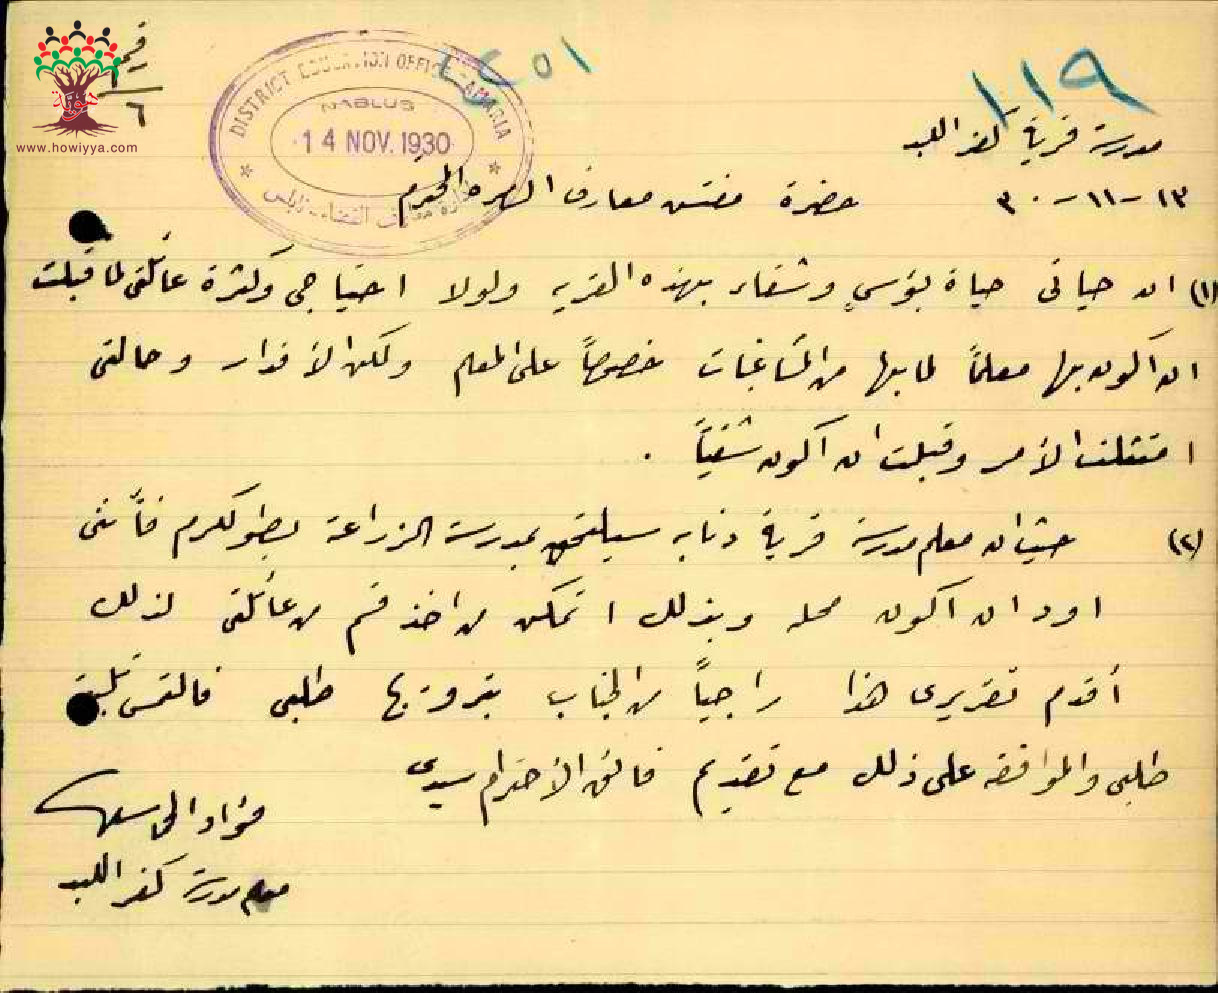 ١١٩
٥١
DISTRICT EDUCATION OFFICE SAMARIA
NABLUS
14 NOV. 1930
www.howiyya.com
٦
مدرسة قرية كفر اللبد
١٣-١١-٣٠
حضرة مفتش معارف السمره المحترم
(١) ان حياتي حياة بؤسٍ وشقاء بهذه القريه ولولا احتياجي وكثرة عائلتي لما قبلت
ان اكون بها معلماً لما بها من المشاغبات خصوصاً على المعلم ولكن الأقدار وحالتي
امتثلت الأمر وقبلت ان اكون شقياً .
(٢) حيث ان معلم مدرسة قرية ذنابه سيلتحق بمدرسة الزراعة بطولكرم فأنني
اود ان اكون محله وبذلك اتمكن من اخذ قسم من عائلتي لذلك
أقدم تقريري هذا راجياً من الجناب طلبي فالتمس تلبية
طلبي والموافقه على ذلك مع تقديم فائق الأحترام سيدي
فؤاد
معلم مدرسة كفر اللبد